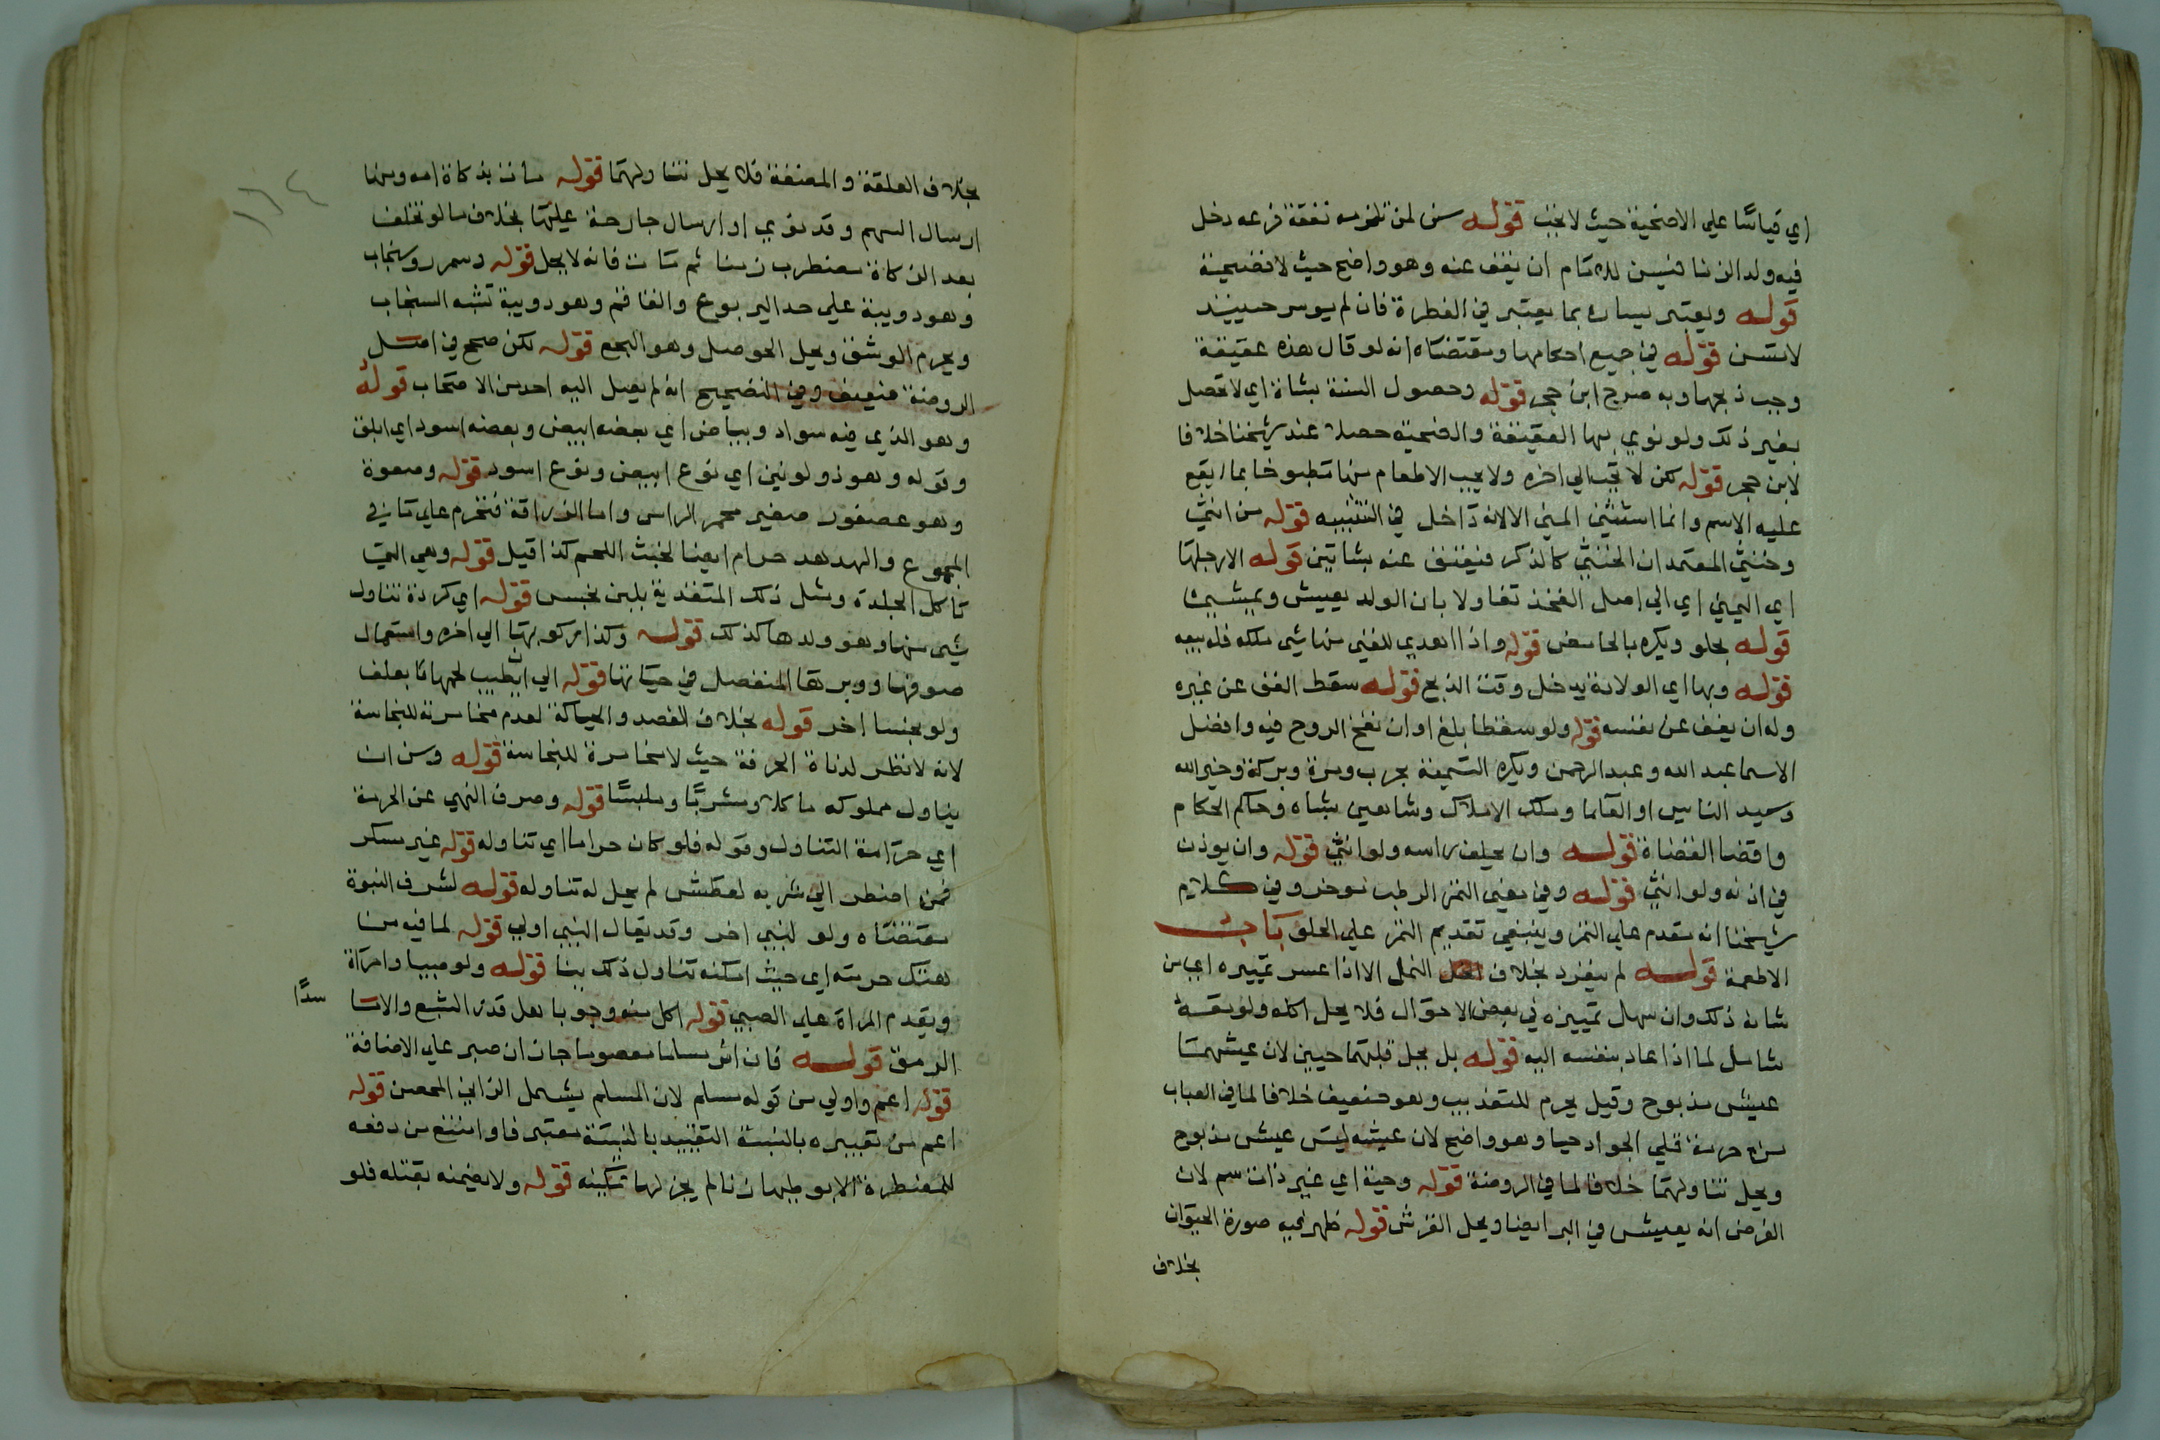 اي قياسا علي الاضحية حيث لا تجب قوله سن لمن تلزمه نفقة فرعه دخل
فيه ولد الزنا فيسن للام ان يعق عنه وهو واضح حيث لا فضيحة
قوله ويعتبر يساره بما يعتبر في الفطرة فان لم يوسر حينيذ
لا تسن قوله في جميع احكامها ومقتضاه انه لو قال هذه عقيقة
وجب ذبحها وبه صرح ابن حجر قوله وحصول السنة بشاة اي لا تحصل
بغير ذلك ولو نوي بها العقيقة والضحية حصلا عند شيخنا خلافا
لابن حجر قوله لكن لا يجب الي اخره ولا يجب الاطعام منها مطبوخا بما يقع
عليه الاسم وانما استثني المني الا لانه داخل في التشبيه قوله من انثي
وخنثي المعتمد ان الخنثي كالذكر فيعق عنه بشاتين قوله الا رجلها
اي اليمني اي الي اصل الفخذ تفاولا بان الولد يعيش ويمشي
قوله بحلو ويكره بالحامض قوله واذا اهدي للغني منها شي ملكه فله بيعه
قوله وبها اي الولادة يدخل وقت الذبح قوله سقط العق عن غيره
وله ان يعق عن نفسه قوله ولو سقطا بلغ اوان نفخ الروح فيه وافضل
الاسما عبد الله وعبد الرحمن ويكره التسمية بحرب ومرة وبركة وخير الله
وسيد الناس او العلما وملك الاملاك وشاهين شاه وحاكم الحكام
واقضا القضاة قوله وان يحلق راسه ولو انثي قوله وان يوذن
في اذنه ولو انثي قوله وفي معني التمر الرطب نوخر وفي كلام
شيخنا انه مقدم علي التمر وينبغي تقديم التمر علي الحلو كتاب
الاطعمة قوله لم ينفرد بخلاف النمل الا اذا عسر تمييزه اي من
شانه ذلك وان سهل تمييزه في بعض الاحوال فلا يحل اكله ولو معه
شامل لما اذا عاد بنفسه اليه قوله بل يحل قليهما حيين لان عيشهما
عيش مذبوح وقيل يحرم للتعذيب وهو ضعيف خلافا لما في العباب
من حرمة قلي الجراد حيا وهو واضح لان عيشه ليس عيش مذبوح
ويحل تناولهما خلافا لما في الروضة قوله وحية اي غير ذات سم لان
الفرض انه يعيش في البر ايضا ويحل القرش قوله ظهر فيه صورة الحيوان
بخلاف
بخلاف العلقة والمضغة فلا يحل تناولهما قوله مات بذكاة امه ومنها
ارسال السهم وقد نوي او ارسال جارحة عليها بخلاف ما لو تخلف
بعد الذكاة مضطرب زمنا ثم مات فانه لا يحل قوله وسمور وسنجاب
وهو دويبة علي حد اليربوع والفاقم وهو دويبة تشبه السنجاب
ويحرم الوشق ويحل الحوصل وهو البجع قوله لكن صحح في اصل
الروضة ضعيف وفي التصحيح انه لم يصل اليه احد من الاصحاب قوله
وهو الذي فيه سواد وبياض اي بعضه ابيض وبعضه اسود اي ابلق
وقوله وهو ذو لونين اي نوع ابيض ونوع اسود قوله وصعوة
وهو عصفور صغير محمر الراس واما الزراقة فتحرم علي ما في
المجموع والهدهد حرام ايضا لخبث اللحم كذا قيل قوله وهي التي
تاكل الجلدة ومثل ذلك المتغذية بلبن نجس قوله اي كره تناول
شي منها وهو ولدها كذلك قوله وكذا ركوبها الي اخره واستعمال
صوفها ووبرها المنفصل في حياتها قوله الي ان يطيب لحمها لا بعلف
ولو نجسا اخر قوله بخلاف الفصد والحياكة لعدم مخامرته للنجاسة
لانه لا نظر لدناة الحرفة حيث لا مخامرة للنجاسة قوله وسن ان
يناول مملوكه ماكلا ومشربا وملبسا قوله وصرف النهي عن الحرمة
اي حرامة التناول وقوله فلو كان حراما اي تناوله قوله غير مسكر
فمن اضطر الي شربه لعطش لم يحل له تناوله قوله لشرف النبوة
مقتضاه ولو لنبي اخر وقد يقال النبي اولي قوله لما فيه من
هتك حرمته اي حيث امكنه تناول ذلك بنا قوله ولو صبيا وامراة
ويقدم المراة علي الصبي قوله اكل منه وجوبا هل قدر الشبع والاسا
سدا
الرمق قوله فان اثر مسلما معصوما جاز ان صبر علي الاضافة
قوله اعم واولي من قوله مسلم لان المسلم يشمل الزاني المحصن قوله
اعم من تعبيره بالنسبة التقييد بالنسبة معتبر فلو امتنع من دفعه
للمضطرة الا بوطيها زنا لم يجز لها تمكينه قوله ولا يضمنه بقتله فلو